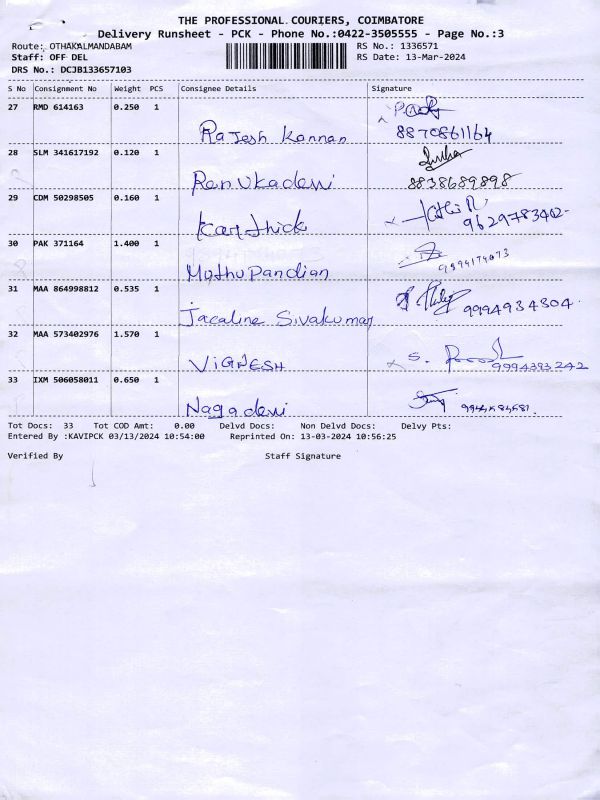 THE PROFESSIONAL COURIERS, COIMBATORE
Delivery Runsheet - PCK - Phone No.:0422-3505555 - Page No.:3
Route: OTHAKALMANDABAM RS No.: 1336571
Staff: OFF DEL RS Date: 13-Mar-2024
DRS No.: DCJB133657103
S No Consignment No Weight PCS Consignee Details Signature
27 RMD 614163 0.250 1
Rajesh Kannan 8870861164
28 SLM 341617192 0.120 1
Renukadevi 8838689898
29 CDM 50298505 0.160 1
Karthick 9629783402
30 PAK 371164 1.400 1
Muthu Pandian
31 MAA 864998812 0.535 1
Jacaline Sivakumar 9994934304
32 MAA 573402976 1.570 1
VIGNESH 9994393242
33 IXM 506058011 0.650 1
Nagadevi
Tot Docs: 33 Tot COD Amt: 0.00 Delvd Docs: Non Delvd Docs: Delvy Pts:
Entered By :KAVIPCK 03/13/2024 10:54:00 Reprinted On: 13-03-2024 10:56:25
Verified By Staff Signature